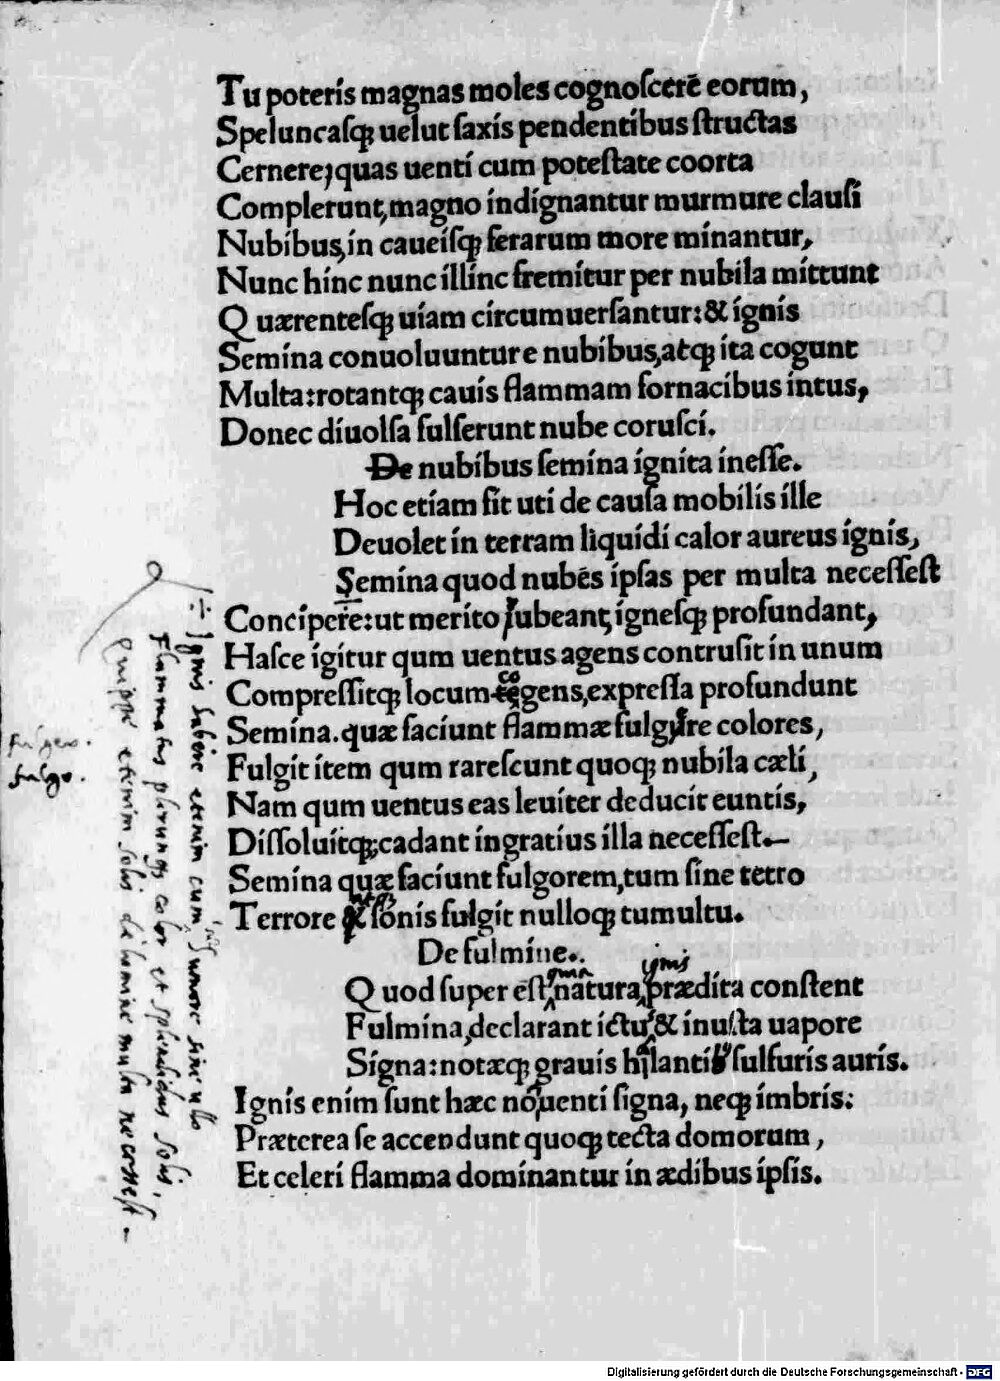 Tu poteris magnas moles cognoſcerē eorum,
Speluncaſqꝫ uelut ſaxis pendentibus ſtructas
Cernere; quas uenti cum poteſtate coorta
Complerunt, magno indignantur murmure clauſi
Nubibus, in caueiſqꝫ ferarum more minantur,
Nunc hinc nunc illinc fremitur per nubila mittunt
Quærenteſqꝫ uiam circumuerſantur: & ignis
Semina conuoluuntur e nubibus, atqꝫ ita cogunt
Multa: rotantqꝫ cauis flammam fornacibus intus,
Donec diuolſa fulſerunt nube coruſci.
De nubibus ſemina ignita ineſſe.
Hoc etiam fit uti de cauſa mobilis ille
Deuolet in terram liquidi calor aureus ignis,
Semina quod nubēs ipſas per multa neceſſeſt
Concipere: ut merito ſubeant, igneſqꝫ profundant,
Haſce igitur qum uentus agens contruſit in unum
Compreſſitqꝫ locum cogens, expreſſa profundunt
Semina. quæ faciunt flammæ fulgure colores,
Fulgit item qum rareſcunt quoqꝫ nubila cæli,
Nam qum uentus eas leuiter deducit euntis,
Diſſoluitqꝫ; cadant ingratius illa neceſſeſt.
Semina quæ faciunt fulgorem, tum ſine tetro
Terrore & ſonis fulgit nulloqꝫ tumultu.
De fulmine.
Quod ſuper eſt, natura, prædita conſtent
ignis
Fulmina, declarant ictus, & inuſta uapore
Signa: notæqꝫ grauis halantis ſulfuris auris.
Ignis enim ſunt hæc nō uenti ſigna, neqꝫ imbris:
Præterea ſe accendunt quoqꝫ tecta domorum,
Et celeri flamma dominantur in ædibus ipſis.
fulgeo.
fulgo.
quippe etenim solis de lumine multa necessest
Digitalisierung gefördert durch die Deutsche Forschungsgemeinschaft - DFG